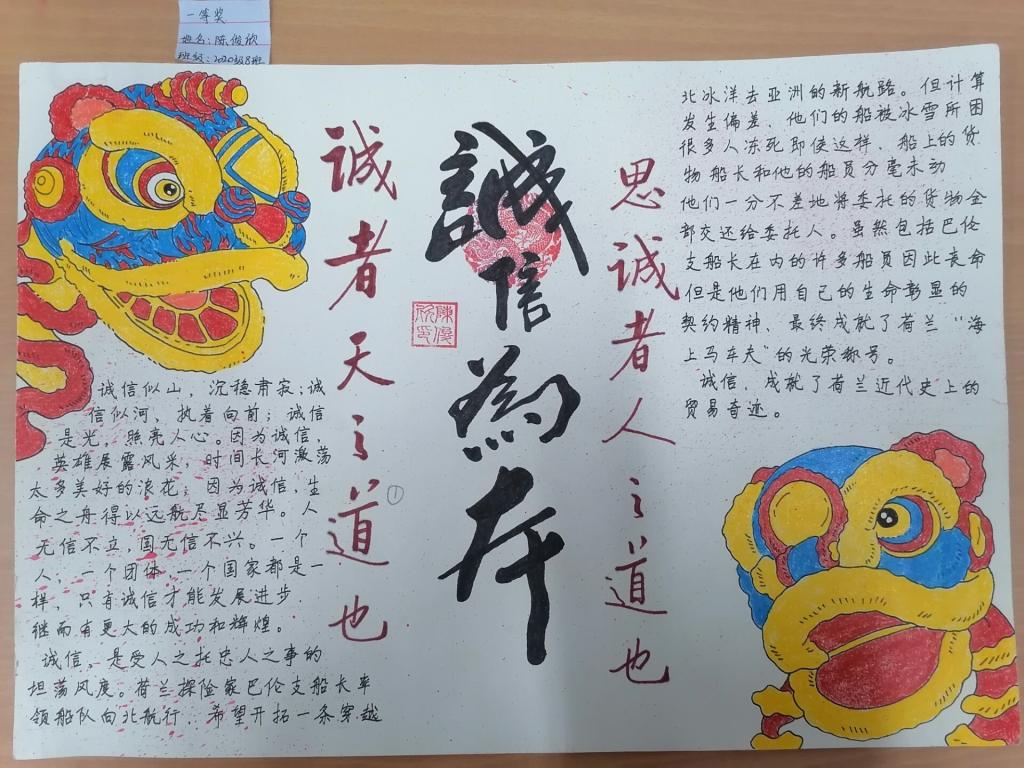 一等奖
姓名：陈俊欣
班级：2020级8班
诚者天之道也
①
誠信為本
陳俊欣印
思诚者人之道也
诚信似山，沉稳肃寂；诚
信似河，执着向前；诚信
是光，照亮人心。因为诚信，
英雄展露风采，时间长河激荡
太多美好的浪花；因为诚信，生
命之舟得以远航尽显芳华。人
无信不立，国无信不兴。一个
人，一个团体，一个国家都是一
样，只有诚信才能发展进步
继而有更大的成功和辉煌。
诚信，是受人之托忠人之事的
坦荡风度。荷兰探险家巴伦支船长率
领船队向北航行，希望开拓一条穿越
北冰洋去亚洲的新航路。但计算
发生偏差，他们的船被冰雪所困
很多人冻死即使这样，船上的货
物船长和他的船员分毫未动
他们一分不差地将委托的货物全
部交还给委托人。虽然包括巴伦
支船长在内的许多船员因此丧命
但是他们用自己的生命彰显的
契约精神，最终成就了荷兰“海
上马车夫”的光荣称号。
诚信，成就了荷兰近代史上的
贸易奇迹。